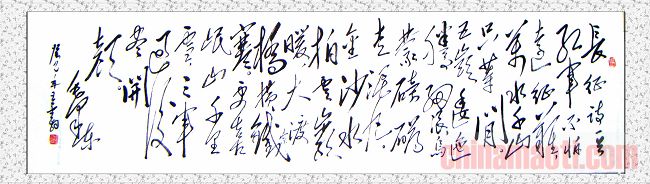 长征诗一首
红军不怕
远征难
万水千山
只等闲
五嶺逶迤
腾细浪乌
蒙磅礴
走泥丸
金沙水
拍云崖
暖大渡
桥横铁
寒更喜
岷山千里
雪三军
过后
尽开
颜
毛泽东
chinamaoti.com